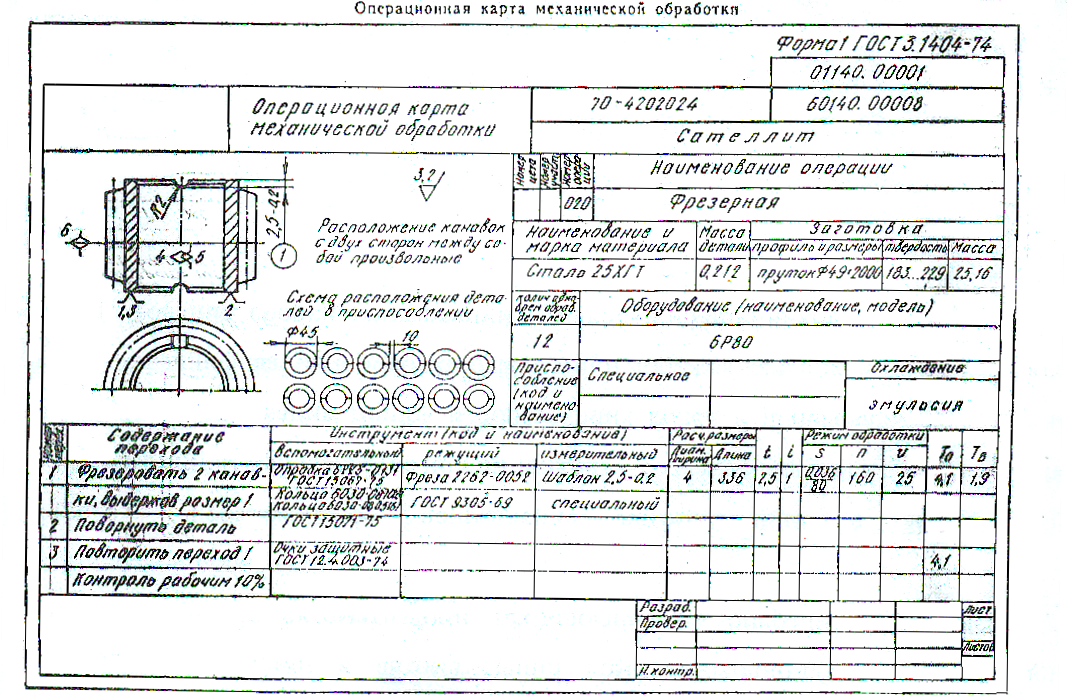 Операционная карта механической обработки
Форма 1 ГОСТ 3.1404-74
01140.00001
Операционная карта
механической обработки
70-4202024
60140.00008
Сателлит
3,2
R2
2,5-0,2
1
6
4
5
1,3
2
Расположение канавок
с двух сторон между со
бой произвольные
Схема расположения дета-
лей в приспособлении
Ф45
10
номер
цеха
номер
номер
опера-
ции
Наименование операции
020
Фрезерная
Наименование и
марка материала
Масса
детали
Заготовка
профиль и размеры
твердость
Масса
Сталь 25ХГТ
0,212
пруток Ф49×2000
183...229
25,16
колич одно-
врем обраб.
деталей
Оборудование (наименование, модель)
12
6Р80
Приспо-
собление
(код и
наимено-
вание)
Специальное
Охлаждение
эмульсия
Содержание
перехода
Инструмент (код и наименование)
вспомогательный
режущий
измерительный
Расч. размеры
Диам.
ширина
Длина
t
i
Режим обработки
s
n
υ
То
Тв
1
Фрезеровать 2 канав-
Оправка
ГОСТ 15067-75
Фреза 2262-0052
Шаблон 2,5-0.2
4
336
2,5
1
0,036
80
160
25
4,1
1,9
ки, выдержав размер 1
Кольцо
Кольцо
ГОСТ 9305-69
специальный
2
Повернуть деталь
ГОСТ 15071-75
3
Повторить переход 1
Очки защитные
ГОСТ 12.4.003-74
4,1
Контроль рабочим 10%
Разраб.
Провер.
Н.контр.
Лист
Листов